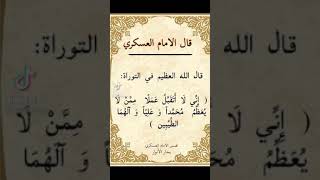 قال الامام العسكري
قال الله العظيم في التوراة:
( إِنِّي لَا أَتَقَبَّلُ عَمَلًا مِمَّنْ لَا
يُعَظِّمُ مُحَمَّداً وَ عَلِيّاً وَ آلَهُمَا
الطَّيِّبِينَ )